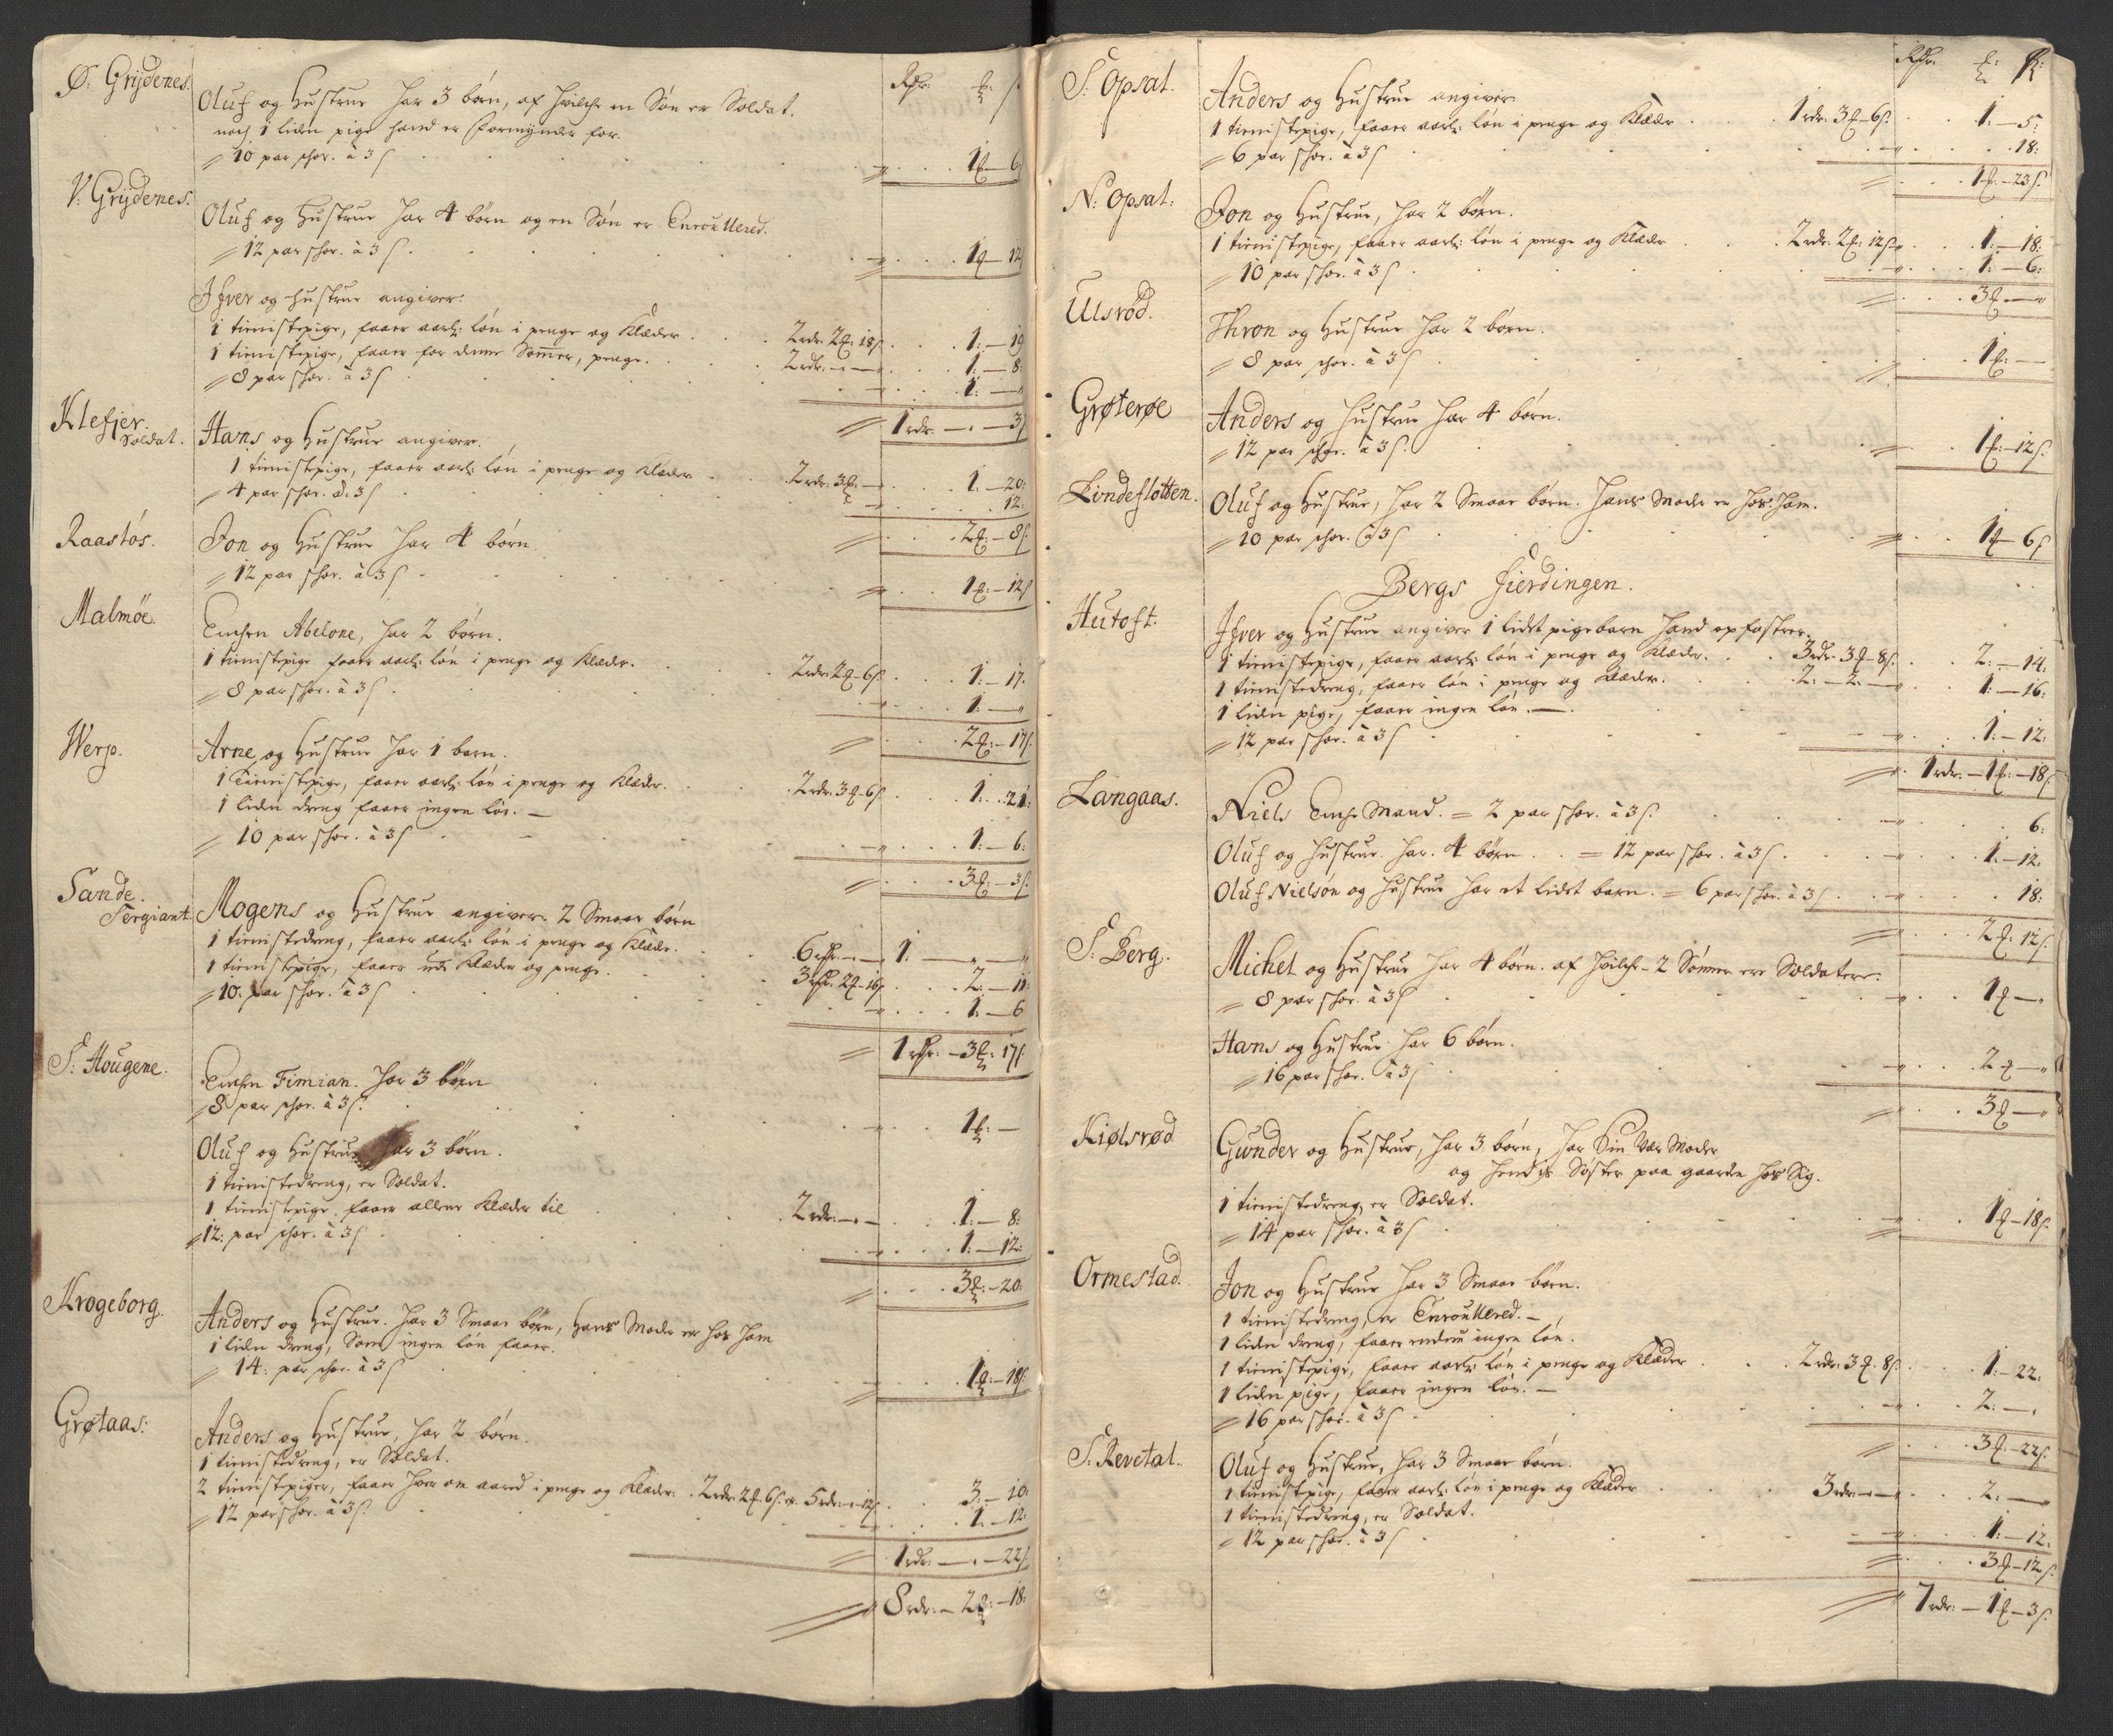 Rdr: ℔: s:
Ø: Grydenes. Oluf og Hustrue har 3 børn, af hvilche en Søn er Soldat.
noch 1 liden pige hand er Formynder for.
10 par schor. à 3 s 1℔ - 6
V: Grydenes. Oluf og Hustrue har 4 børn og en Søn er Enroullered.
12 par schor. à 3 s 1℔ - 12
Ifver og Hustrue angiver:
1 tienistepige, faaer aarl: løn i penge og Klæder 2 rdr. 2℔: 18 s 1: - 19
1 tienistepige, faaer for denne Sommer, penge. 2 rdr. 1: - 8:
8 par schor. à 3 s 1: -
1 rdr. - 3 s
Klefjer. Soldat. Hans og Hustrue angiver.
1 tienistepige, faaer aarl: løn i penge og Klæder 2 rdr. 3℔: 1 - 20:
4 par schor. à 3 s 12:
2℔: - 8 s
Raastos. Jon og Hustrue har 4 børn
12 par schor. à 3 s 1℔: - 12 s
Malmöe. Enchen Abelone, har 2 børn.
1 tienistepige faaer aarl: løn i penge og Klæder. 2 rdr. 2℔ - 6 s 1: - 17.
8 par schor. à 3 s 1: -
2℔: - 17 s
Werp. Arne og Hustrue har 1 barn.
1 Tienistepige, faaer aarl: løn i penge og Klæder. 2 rdr. 3℔ - 6 s 1. 21:
1 liden dreng faaer ingen løn. -
10 par schor. à 3 s 1: - 6:
3℔: - 3 s
Sande. Sergiant. Mogens og Hustrue angiver. 2 Smaae børn
1 tienistedreng, faaer aarl: løn i penge og Klæder. 6 rdr. 1
1 tienistepige, faaer Klæder og penge. 3 rdr. 2℔ - 16 s 2. - 11:
10. par schor. à 3 s 1. - 6
1 rdr: - 3℔: 17 s
S: Hougene. Enchen Fimian. har 3 børn
8 par schor. à 3 s. 1℔: -
Oluf og Hustrue har 3 børn.
1 tienistedreng, er Soldat.
1 tienistepige faaer allene Klæder til 2 rdr. 1: - 8:
12: par schor. à 3 s 1. - 12:
3℔: - 20:
Krogeborg. Anders og Hustrue. har 3 Smaae børn, Hans Moder er hos ham
1 liden dreng, Som ingen løn faaer.
14. par schor. à 3 s 1℔: - 18 s
Grøtaas: Anders og Hustrue, har 2 børn.
1 tienistedreng, er Soldat.
2 tienistepiger, faaer hver om aaret i penge og Klæder. 2 rdr. 2℔. 6 s. 5 rdr. - 12 s 3. - 10.
12 par schor. à 3 s. 1. - 12.
1 rdr: - 22 s
8 rdr: - 2℔: - 18:
Rdr: ℔: s:
S: Opsat. Anders og Hustrue angiver
1 tienistepige, faaer aarl: løn i penge og Klæder 1 rdr. 3℔ - 6 s. 1: - 5:
6 par schor. à 3 s 18:
1℔. - 23 s.
N: Opsat: Jon og Hustrue, har 2 børn.
1 tienistepige, faaer aarl: løn i penge og Klæder 2 rdr. 2℔: 12 s 1: - 18:
10 par schor. à 3 s 1: - 6:
3℔ -
Ulsrød. Thron og Hustrue har 2 børn.
8 par schor. à 3 s 1℔: -
Grøterøe Anders og Hustrue har 4 børn.
12 par schor. à 3 s. 1℔: - 12 s.
Lindeslotten. Oluf og Hustrue, har 2 Smaae børn. Hans Moder er hos ham.
10 par schor. à 3 s 1℔ - 6 s
Bergs Fierdingen.
Hutoft. Ifver og Hustrue angiver 1 lidet pigebarn hand opfostrer.
1 tienistepige, faaer aarl: løn i penge og Klæder. 3 rdr. 3℔ - 8 s. 2: - 14.
1 tienistedreng, faaer løn i penge og Klæder. 2. - 2. - 1: - 16:
1 liden pige, faaer ingen løn. -
12 par schor. à 3 s 1: - 12:
1 rdr. - 1℔: - 18 s
Langaas. Niels Enche Mand. = 2 par schor. à 3 s. 6:
Oluf og Hustrue. har. 4 børn. = 12 par schor. à 3 s. 1: - 12.
Oluf Nielsøn og Hustrue har et lidet barn. = 6 par schor. à 3 s. 18:
2℔. 12 s.
S. Berg. Michel og Hustrue har 4 børn. af hvilche - 2 Sønner ere Soldatere.
8 par schor. à 3 s 1℔ -
Hans og Hustrue har 6 børn.
16 par schor. à 3 s 2℔ -
3℔ -
Kiølsrød Gunder og Hustrue, har 3 børn, har Sin Moder
og hendes Søster paa gaarden hos Sig.
1 tienistedreng, er Soldat.
14 par schor. à 3 s 1℔ - 18 s.
Ormestad. Jon og Hustrue har 3 Smaae børn.
1 tienistedreng, er Enroullered. -
1 liden dreng, faaer endnu ingen løn.
1 tienistepige, faaer aarl: løn i penge og Klæder 2 rdr. 3℔. 8 s. 1. - 22.
1 liden pige, faaer ingen løn. -
16 par schor. à 3 s 2. -
3℔. - 22 s.
S: Revetal. Oluf og Hustrue, har 3 Smaae børn.
1 tienistepige, faaer aarl: løn i penge og Klæder 3 rdr. 2. -
1 tienistedreng, er Soldat.
12 par schor. à 3 s 1. - 12.
3℔ - 12 s.
7 rdr. - 1℔ - 3 s.